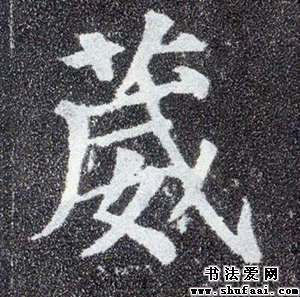 葳
书法爱网
www.shufaai.com